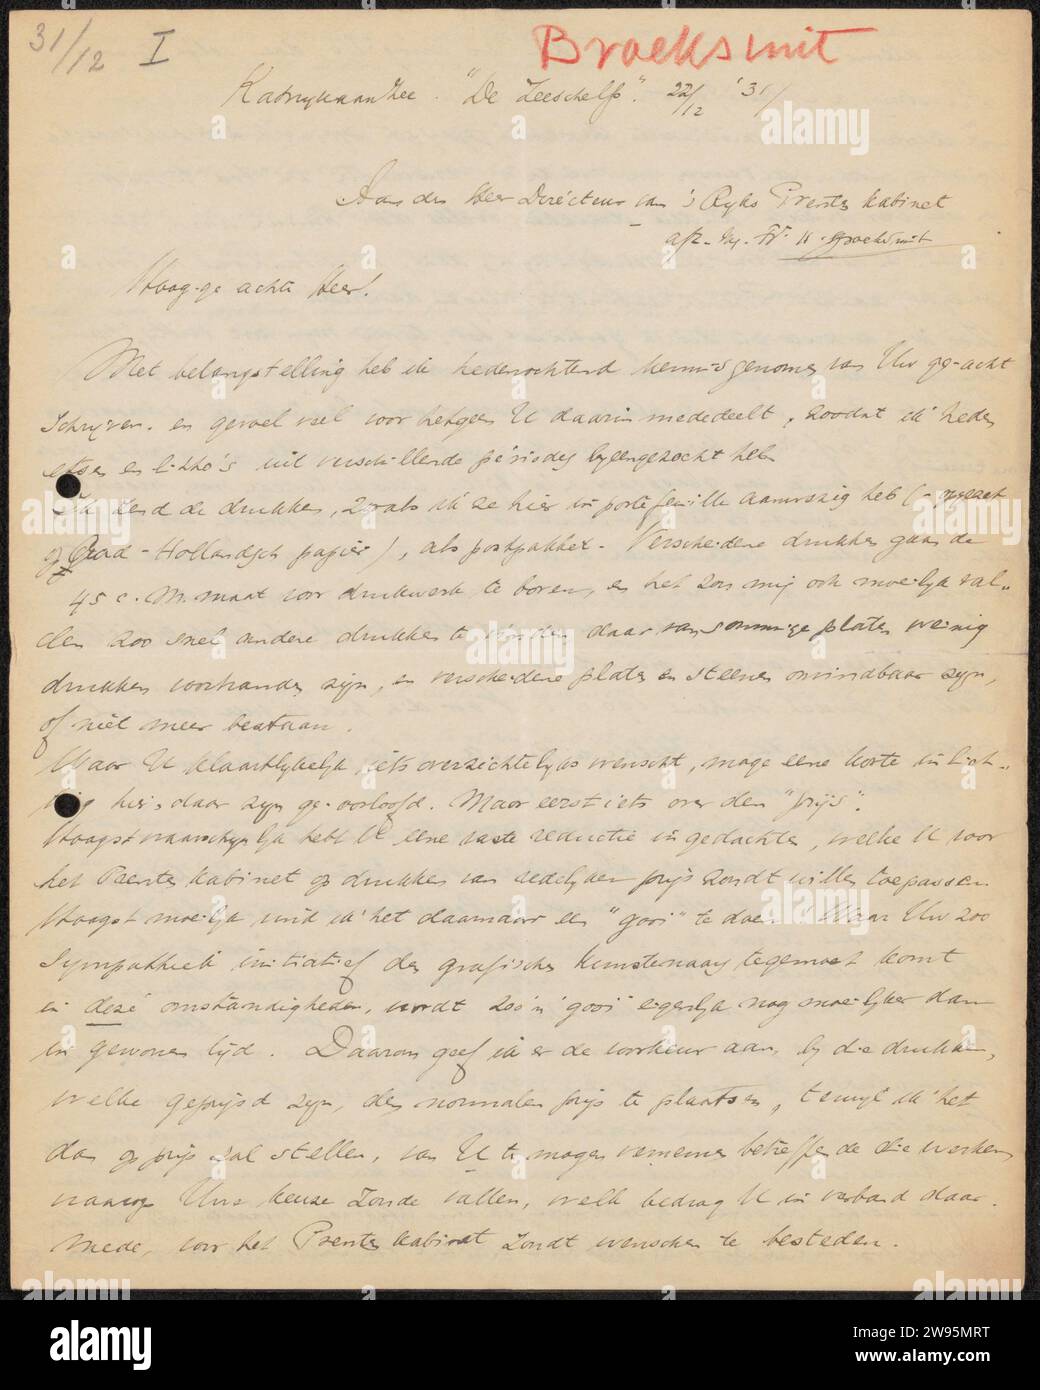 31/12 I
Broeksmit
Katwyk aan Zee. "De Zeeschelp". 22/12 '31/
Aan den Heer Directeur van 's Ryks Prentenkabinet
afz. Fr. H. Broeksmit
Hoog-ge achte Heer!
Met belangstelling heb ik hedenochtend kennisgenomen van Uw ge-acht
schrijven. en gevoel veel voor hetgeen U daarin mededeelt, zoodat ik heden
etsen en litho's uit verschillende périodes byeengezocht heb
Ik zend de drukken, zooals ik ze hier in portefeuille aanwezig heb (- opgezet
op Oud-Hollandsch papier), als postpakket. Verscheidene drukken gaan de
45 c.M. maat voor drukwerk te boven, en het zou mij ook moeilyk val-
len zoo snel andere drukken te vinden daar van sommige platen weinig
drukken voorhanden zijn, en verscheidene platen en steenen onvindbaar zyn,
of niet meer bestaan.
Waar U klaarblykelyk iets overzichtelyks wenscht, moge eene korte inlich-
ting hier en daar zyn ge-oorloofd. Maar eerst iets over den "prijs".
Hoogst waarschynlyk hebt U eene vaste reductie in gedachten, welke U voor
het Prentenkabinet op drukken van redelyken prijs zoudt willen toepassen
Hoogst moeilyk vind ik het daarnaar een "gooi" te doen. Waar Uw zoo
sympathiek initiatief den grafischen kunstenaar tegemoet komt
in deze omstandigheden, wordt zoo'n gooi eigenlyk nog moeilyker dan
in gewonen tijd. Daarom geef ik er de voorkeur aan, by die drukken,
welke geprijsd zyn, den normalen prijs te plaatsen, terwyl ik het
dan op prijs zal stellen, van U te mogen vernemen betreffende die werken
waarop Uwe keuze zoude vallen, welk bedrag U in verband daar-
mede, voor het Prentenkabinet zoudt wenschen te besteden.
alamy
Image ID: 2W95MRT
www.alamy.com